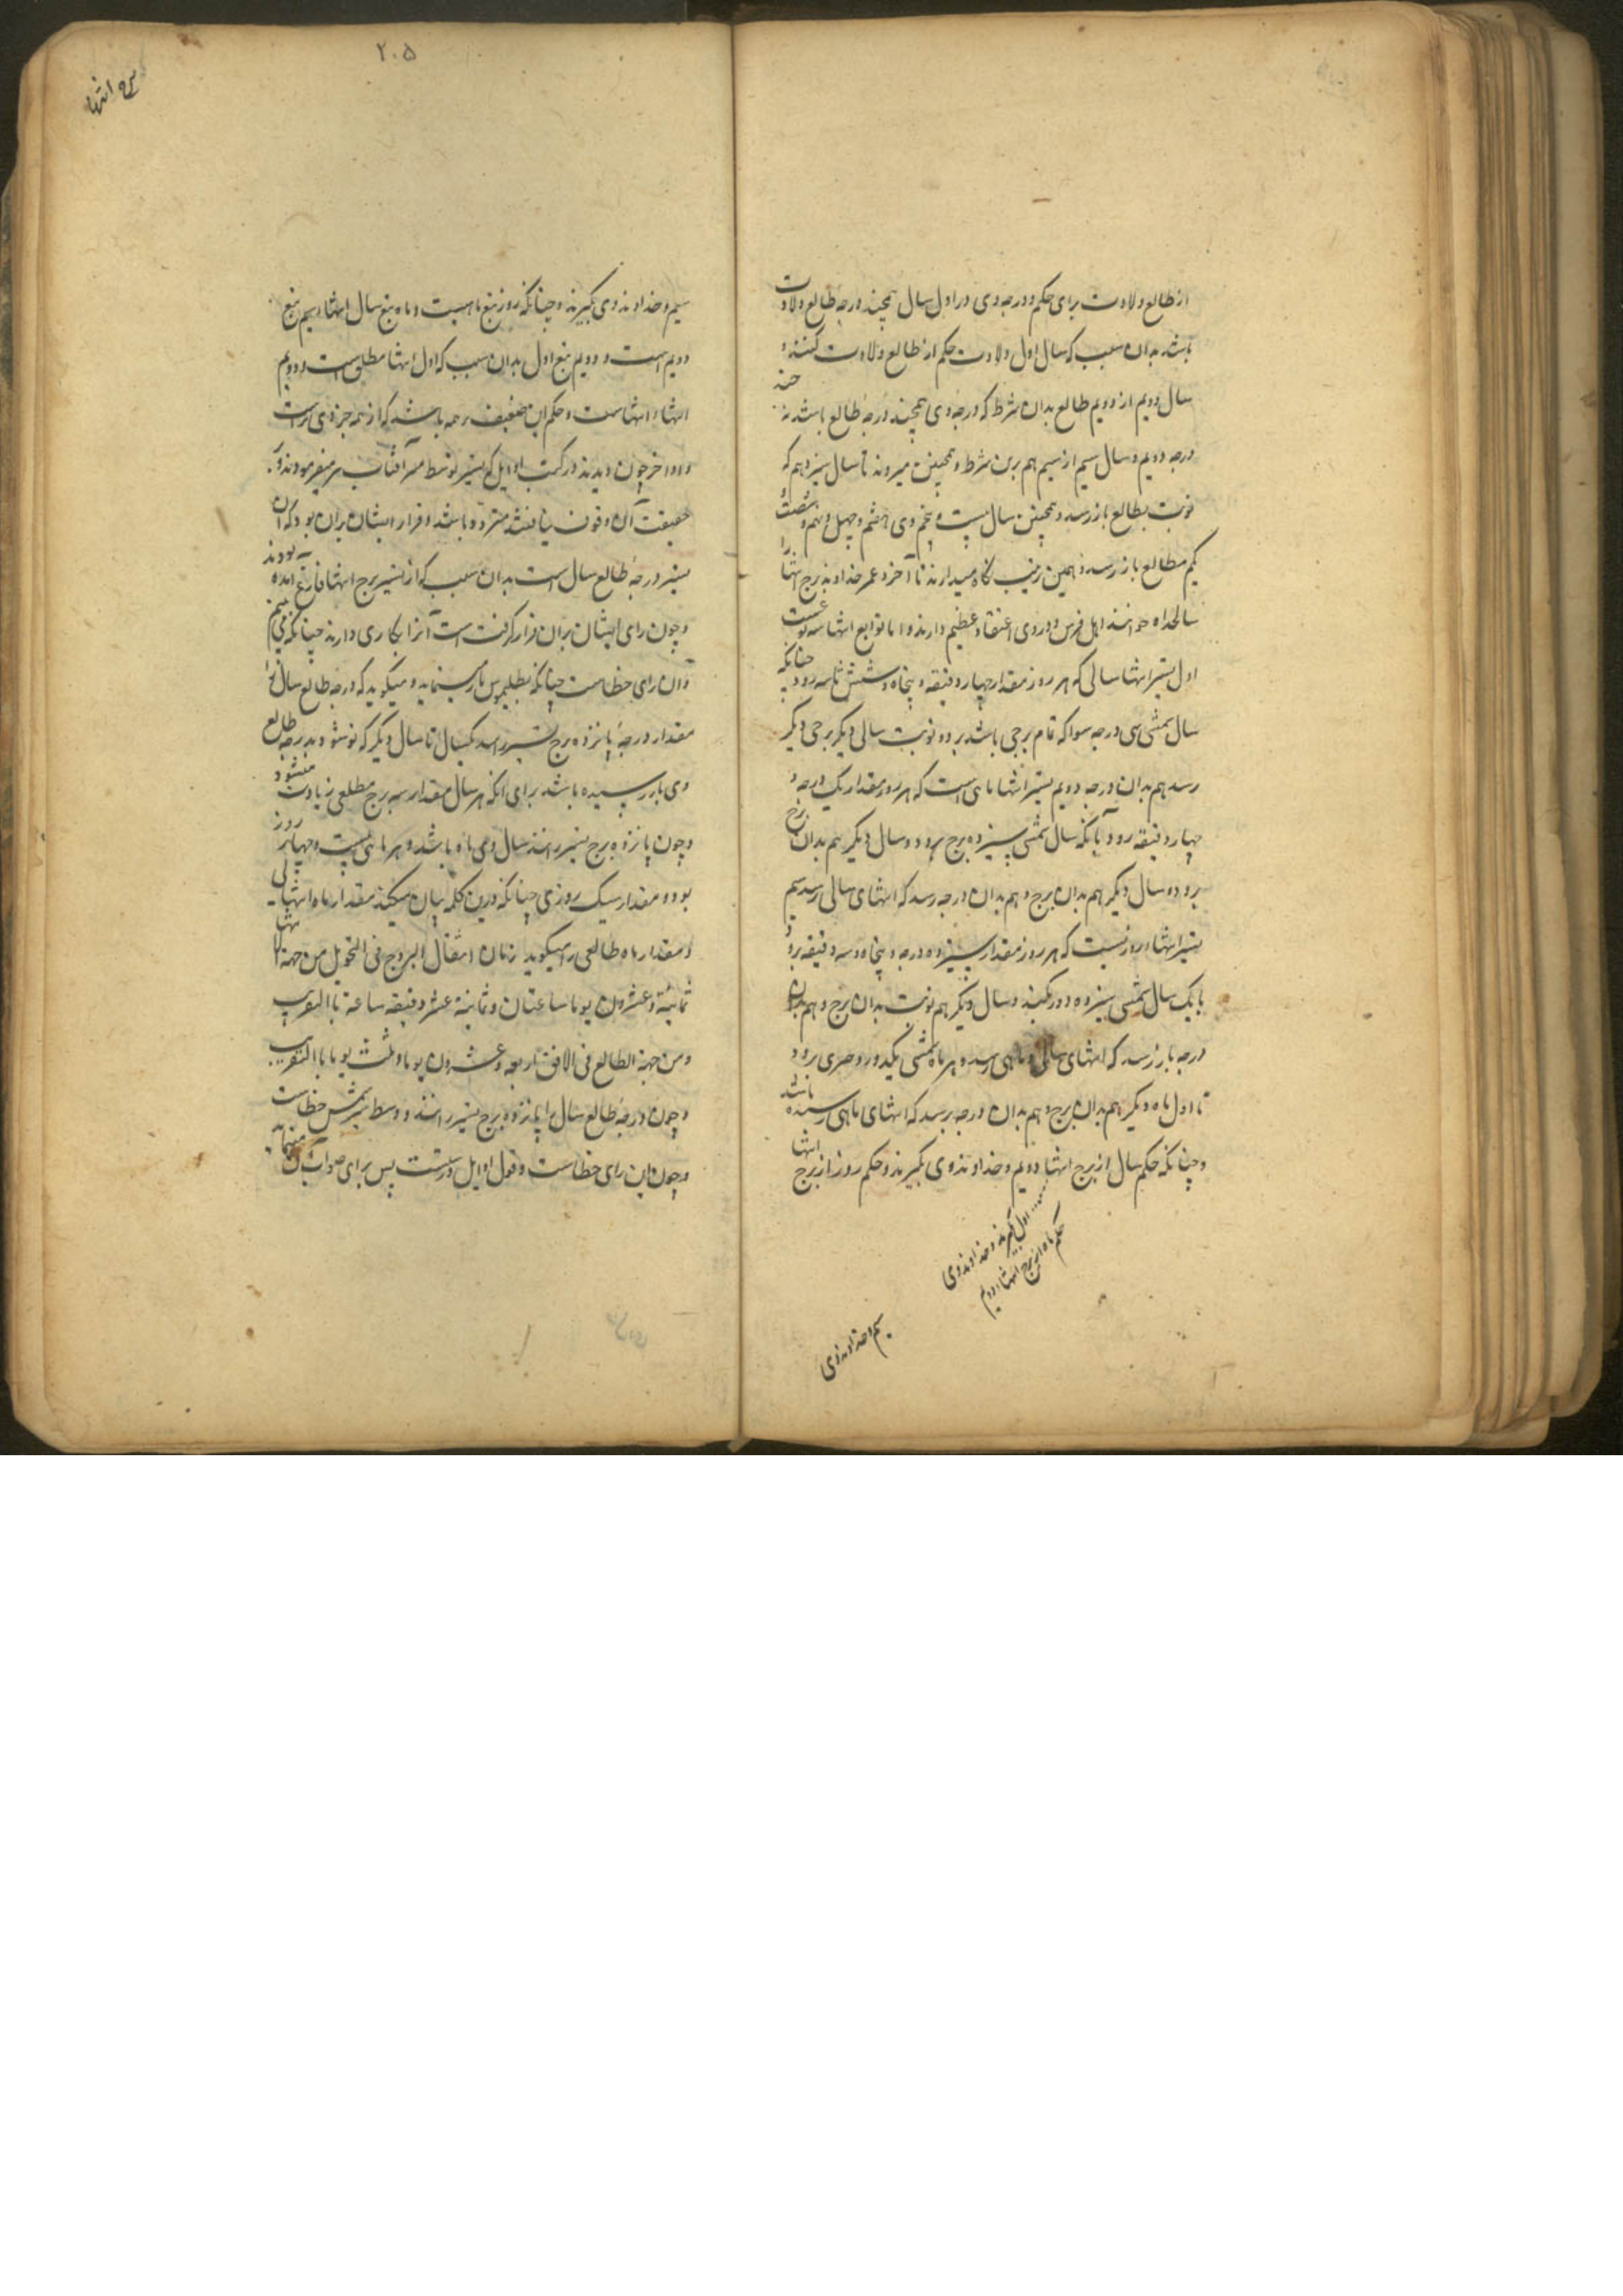 از طالع ولادت برای حکم و درجه وی در اول سال همچند درجه طالع ولادت
باشد بدان سبب که سال اول ولادت حکم از طالع ولادت کنند و
سال دویم از دویم طالع بدان شرط که درجه وی همچند درجه طالع باشد نه
درجه دویم و سال سیم از سیم هم برین شرط و همچنین میروند تا سال سیزدهم که
نوبت بطالع باز رسد و همچنین سال بیست و پنجم و سی هفتم و چهل و نهم و شصت
یکم مطالع باز رسد و بهمین ترتیب نگاه میدارند تا آخر عمر خداوند برج انتها را
سالخداه خوانند اهل فرس و در وی اعتقاد عظیم دارند و اما توابع انتها سه نوعست
اول تسیر انتها سالی که هر روز مقدار چهار دقیقه و پنجاه و شش ثانیه رود چنانکه
سال شمسی سی درجه سوا که تمام برجی باشد برود و نوبت سالی دیگر برجی دیگر
رسد هم بدان درجه دویم تسیر انتها ماهی است که هر روز مقدار یک درجه و
چهار دقیقه رود تا یکسال شمسی سیزده برج برود و سال دیگر هم بدان برج
رود و سال دیگر هم بدان برج و هم بدان درجه رسد که انتهای سالی رسد سیم
تسیر انتها روزیست که هر روز مقدار سیزده درجه و پنجاه و سه دقیقه برود
تا یک سال شمسی سیزده دور کند و سال دیگر هم نوبت بدان برج و هم بدان
درجه باز رسد که انتهای سالی و ماهی رسد و هر ماه شمسی یکدور و برود
تا اول ماه دیگر هم بدان برج و هم بدان درجه برسد که انتهای ماهی رسیده باشد
و چنانکه حکم سال از برج انتها دویم و خداوند وی بگیرند و حکم روز از برج انتها
اول بگیرند و خداوند وی
حکم ماه از برج انتها دویم
سیم و خداوند وی
۲۰۵
برج انتها
سیم و خداوند وی بگیرند و چنانکه روز تبع ماهست و ماه تبع سال انتها سیم تبع
دویم است و دویم تبع اول بدان سبب که اول انتها مطلق است و دویم
انتهاء انتهاست و حکم این ضعیف باشد که از همه جزوی است
و اواخر چون دیدند در کتب اوایل که تسیر توسط آفتاب میفرمودند و بر
حقیقت آن وقوف نیافتند متردد باشد و قرار ایشان بران بود که آن
تسیر درجه طالع سال است بدان سبب که از تسیر برج انتها فارغ آمده بودند
و چون رای ایشان بران قرار گرفت است آنرا بکار می دارند چنانکه می بینم
و آن رای خطاست چنانکه بطلمیوس میگوید که درجه طالع سال را
مقدار درجه پانزده برج تسیر رسد یکسال تا سال دیگر که نو شود بدرجه طالع
وی باز رسیده باشد برای آنکه هر سال مقدار سه برج مطلعی زیادت میشود
و چون پانزده برج تسیر رانند سال وی ماه باشد و هر ماهی بیست و چهار روز
بود و مقدار سیک روزی چنانکه درین کلمه بیان میکند مقدار ماه انتهایی
و مقدار ماه طالعی را میگوید زمان انتقال البروج فی التحویل من جهة الانتها
ثمانیة و عشرون یوما ساعتان و ثمانیة عشر دقیقه ساعة بالتقریب
و من جهة الطالع فی الافق اربعه و عشرون یوما و ثلث یوما بالتقریب
و چون درجه طالع سال را پانزده برج تسیر رانند و وسط سیر شمس خطاست
و چون این رای خطاست و قول اوایل درست پس برای صواب آن